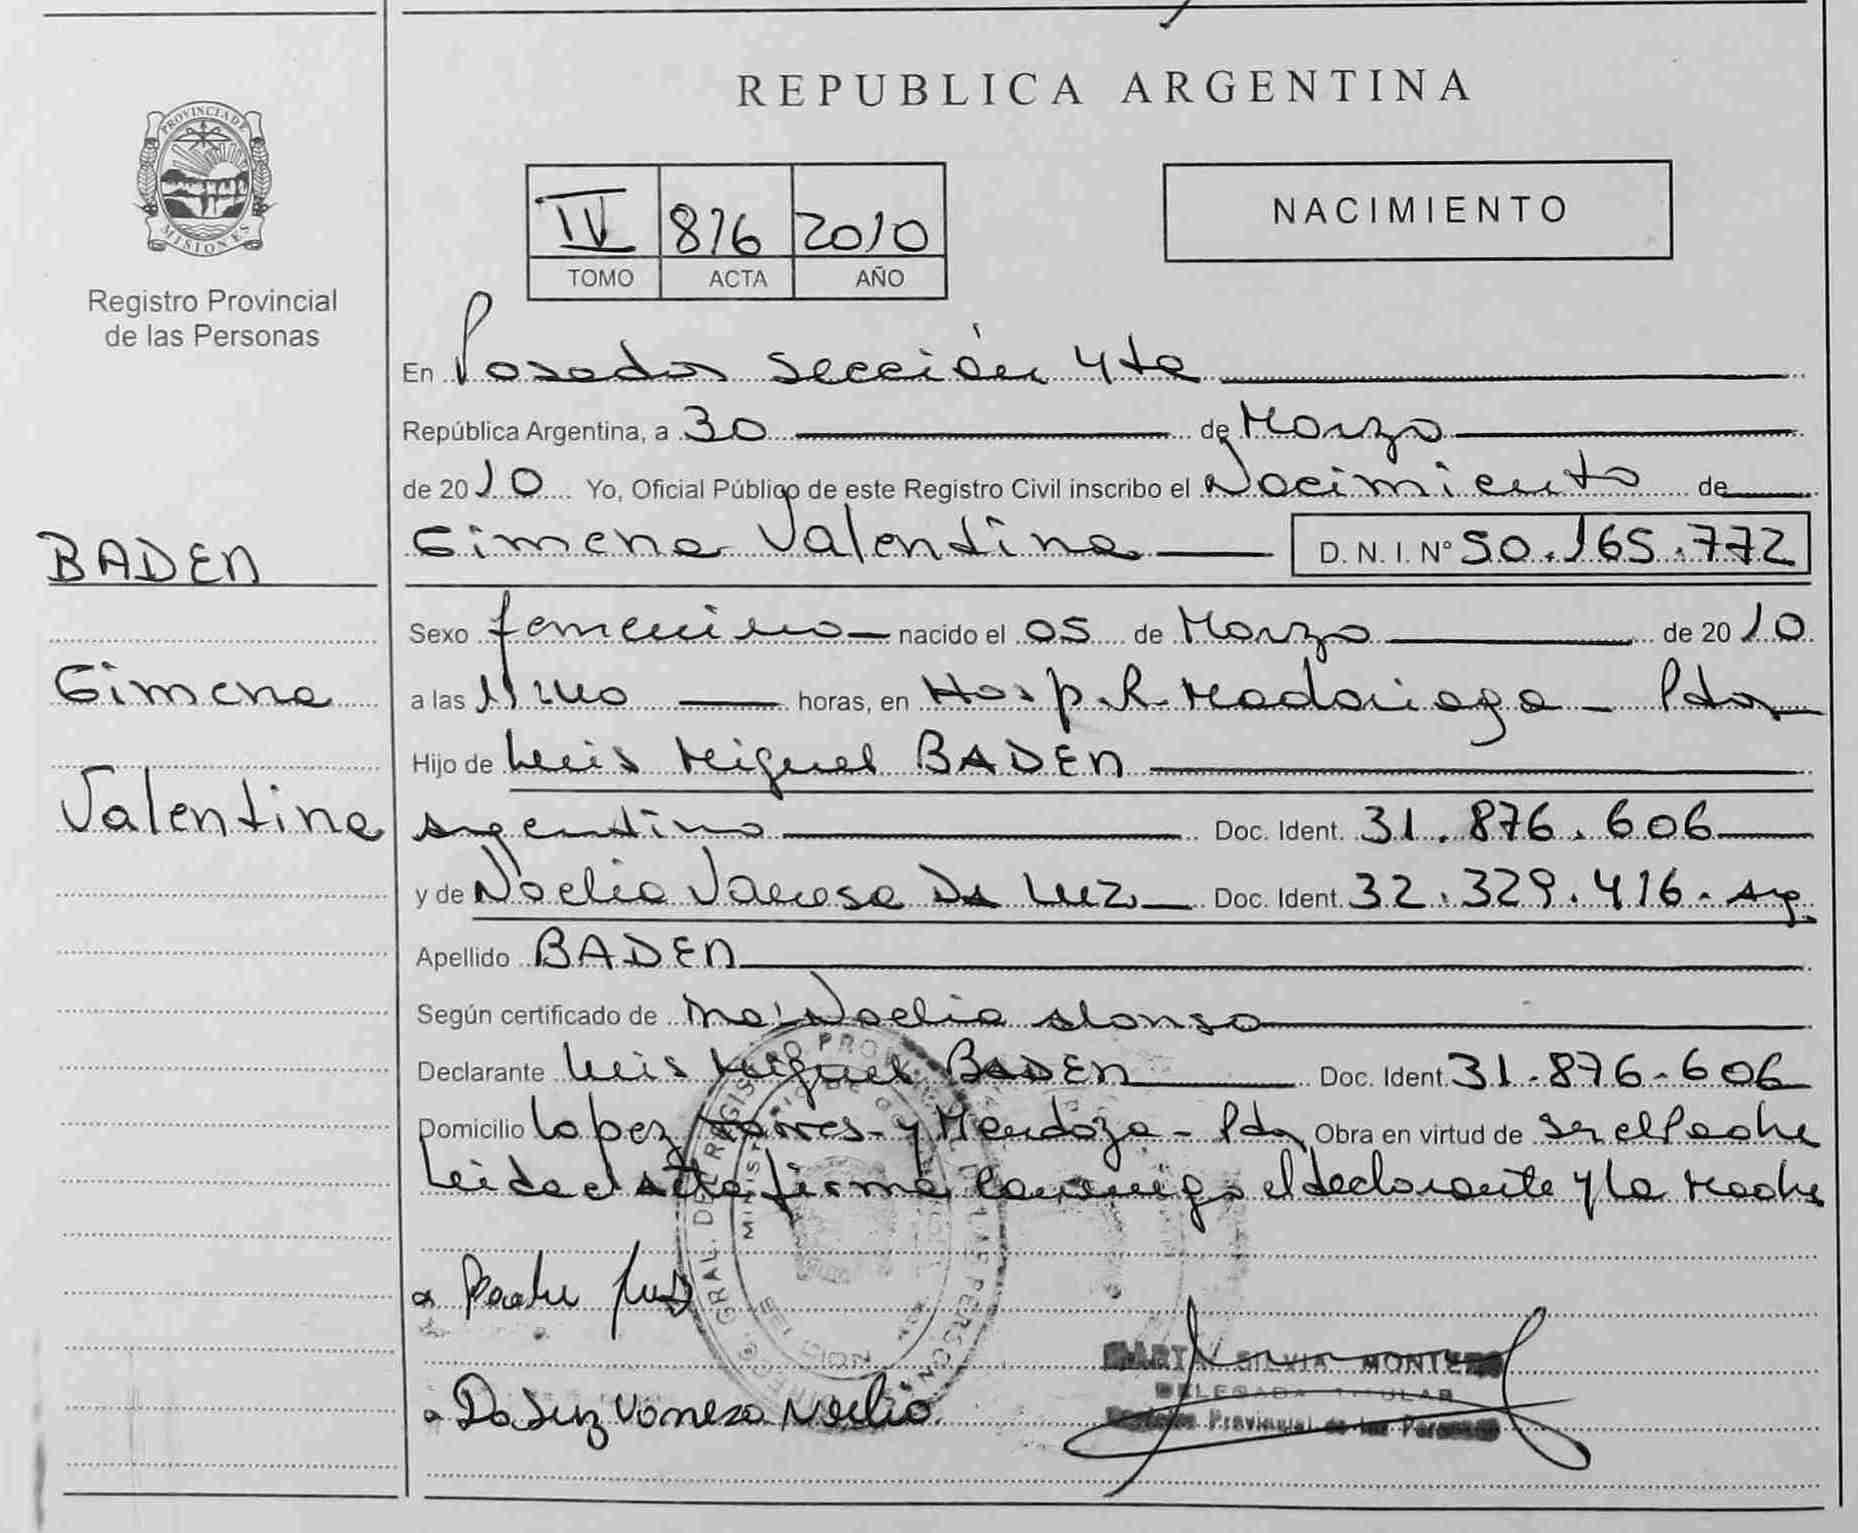 PROVINCIA DE
MISIONES
Registro Provincial
de las Personas
BADEN
Gimena
Valentina
REPUBLICA ARGENTINA
IV 816 2010
TOMO ACTA AÑO
NACIMIENTO
En Posadas sección 4ta
República Argentina, a 30 de Marzo
de 2010 Yo, Oficial Público de este Registro Civil inscribo el Nacimiento de
Gimena Valentina D. N. I. Nº 50.165.772
Sexo femenino nacido el 05 de Marzo de 2010
a las horas, en Hosp. R. Madariaga - Pdas
Hijo de Luis Miguel BADEN
argentino Doc. Ident. 31.876.606
y de Noelia Vanesa Da Luz Doc. Ident. 32.329.416 - arg.
Apellido BADEN
Según certificado de Noelia Alonso
Declarante Luis Miguel BADEN Doc. Ident. 31-876-606
Domicilio Lopez Torres - y Mendoza - Pdas Obra en virtud de ser el Padre
Leida el acta firma conmigo el declarante y la Madre
Padre
Da Luz Vanesa Noelia
SILVIA MONTERO
DELEGADA TITULAR
Provincial de las Personas